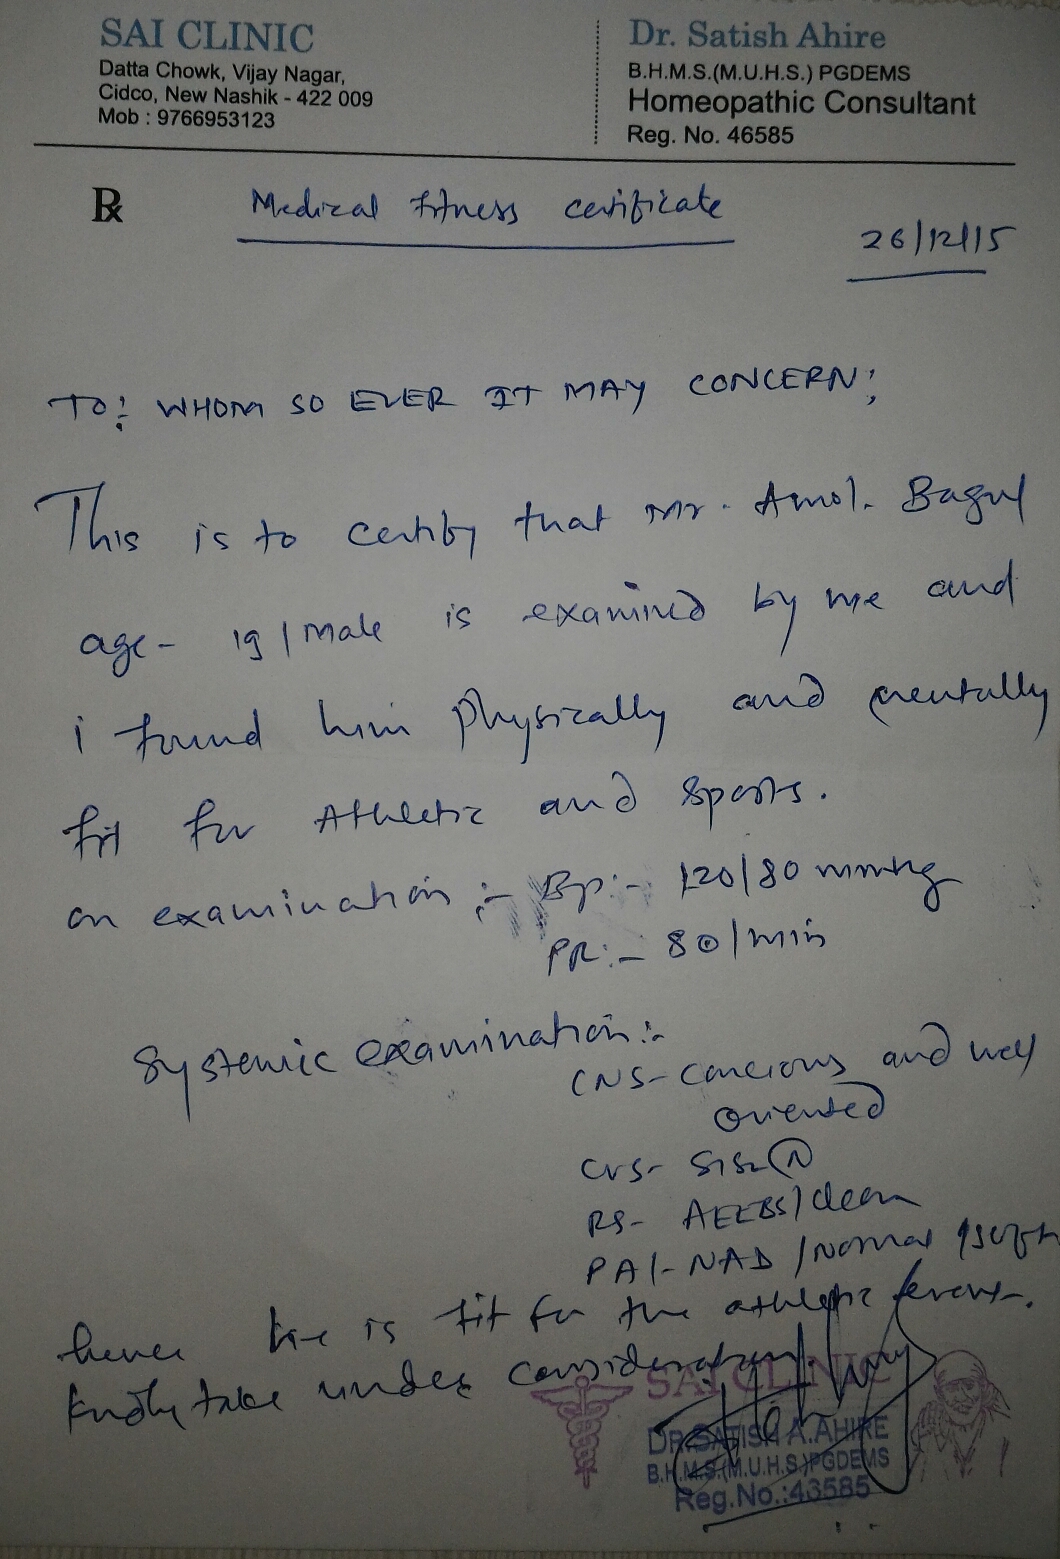 SAI CLINIC
Datta Chowk, Vijay Nagar,
Cidco, New Nashik - 422 009
Mob : 9766953123
Dr. Satish Ahire
B.H.M.S.(M.U.H.S.) PGDEMS
Homeopathic Consultant
Reg. No. 46585
℞ Medical fitness certificate
26/12/15
TO: WHOM SO EVER IT MAY CONCERN;
This is to certify that Mr. Amol. Bagul
age- 19/male is examined by me and
i found him physically and mentally
fit for Athletic and sports.
on examination :- Bp:- 120/80 mmhg
PR:- 80/min
Systemic examination:-
CNS- concious and well
oriented
CVS- S1S2 Ⓝ
RS- AEEBS/clear
PA/- NAD/Normal/soft
hence he is fit for the athletic event.
kindly take under consideration.
SAI CLINIC
DR.SATISH A.AHIRE
B.H.M.S.(M.U.H.S.)PGDEMS
Reg.No.:43585